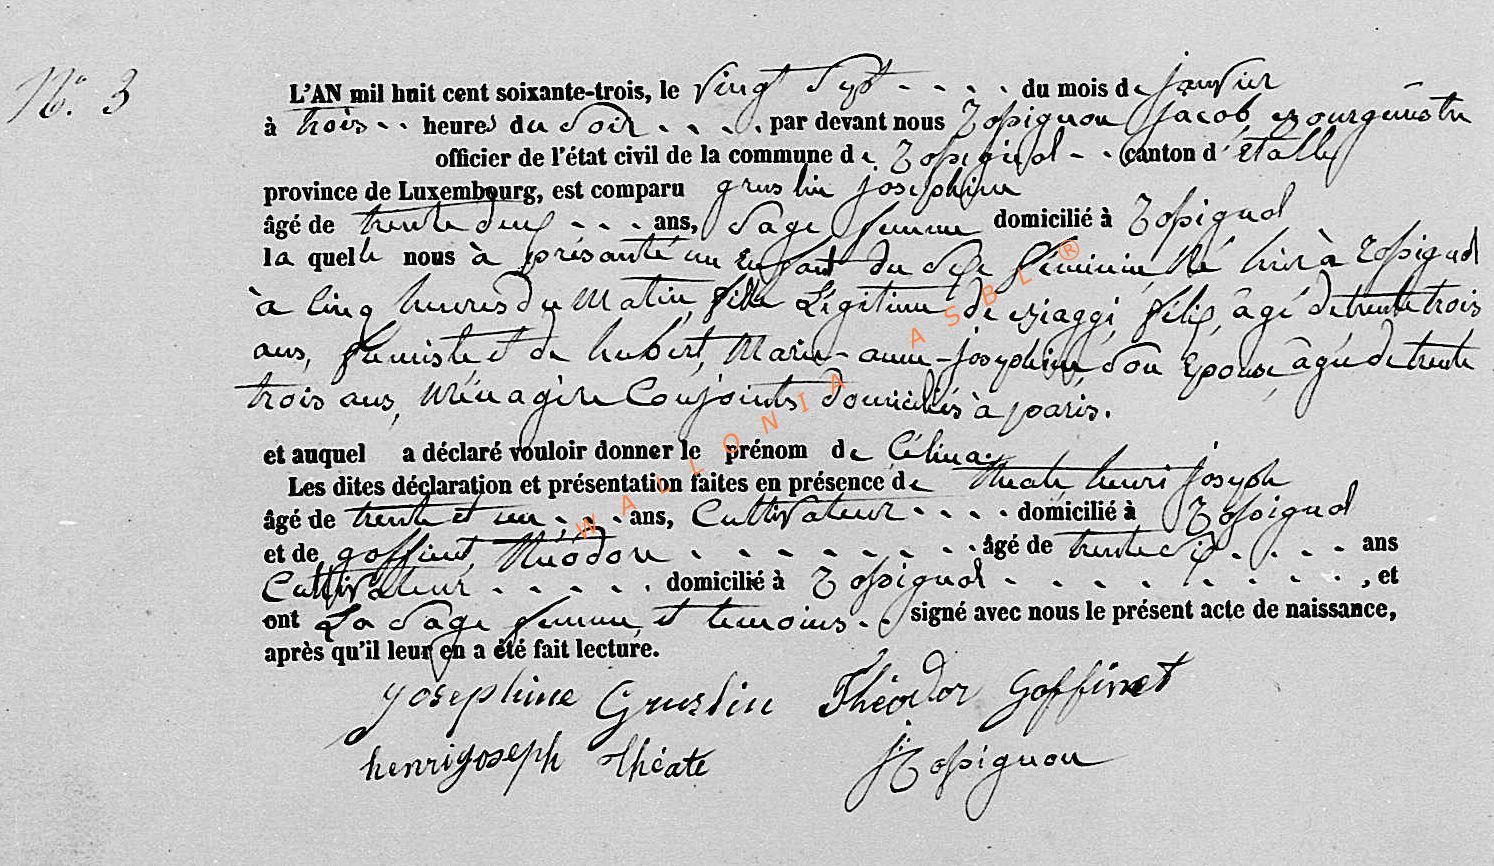 N° 3
L'AN mil huit cent soixante-trois, le vingt sept - - - - du mois de janvier
à trois - - heures du Soir - - - - par devant nous Rossignon jacob, Bourguestre
officier de l'état civil de la commune de Rossignol - - canton d'étalle
province de Luxembourg, est comparu gruslin josephine
âgé de trente deux - - - ans, Sage femme domicilié à Rossignol
la quelle nous à présanté un Enfant du Sexe féminin, Né hier à Rossignol
à Cinq heures du Matin, fille Légitime de Biaggi, félix, âgé de trente trois
ans, fumiste et de hubert, Marie-anne-josephine, Son Epouse, âgée de trente
trois ans, Ménagère Conjoints domiciliés à paris.
et auquel a déclaré vouloir donner le prénom de Célina.
Les dites déclaration et présentation faites en présence de théate henri joseph
âgé de trente et un - - - ans, Cultivateur - - - - domicilié à Rossignol
et de goffinet, théodore - - - - - - - - - âgé de trente six - - - - ans
Cultivateur - - - - - domicilié à Rossignol - - - - - - - - , et
ont La Sage femme et temoins - - signé avec nous le présent acte de naissance,
après qu'il leur en a été fait lecture.
josephine Gruslin Théodor Goffinet
henri joseph théate J: Rossignon
WALLONIA ASBL ®